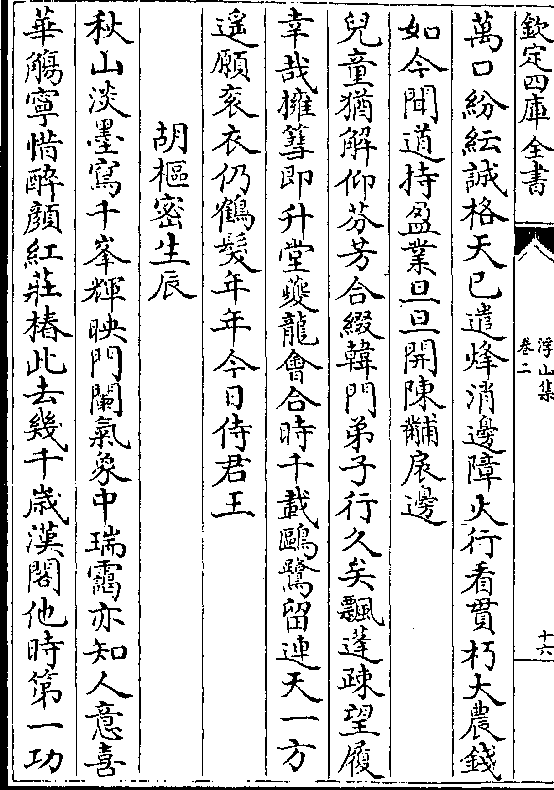 欽定四庫全書
浮山集
卷二
十六
萬口紛紜誠格天已遣烽消邊障火行看貫朽大農錢
如今聞道持盈業旦旦開陳黼扆邊
兒童猶解仰芬芳合綴韓門弟子行久矣飄蓬疎望履
幸哉擁篲即升堂夔龍會合時千載鷗鷺留連天一方
遥願衮衣仍鶴髮年年今日侍君王
胡樞密生辰
秋山淡墨寫千峯輝映門闌氣象中瑞靄亦知人意喜
華觴寧惜醉顔紅莊椿此去幾千歲漢閣他時第一功